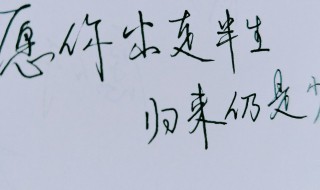 愿你出走半生
归来仍是